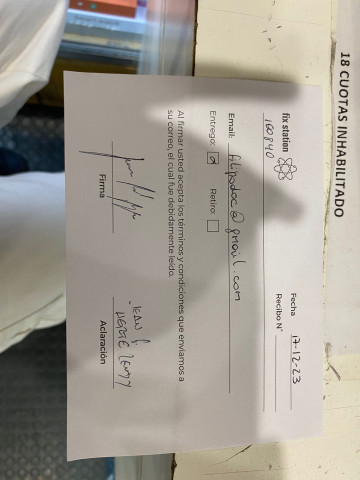 18 CUOTAS INHABILITADO
fix station
160840
Fecha 17-12-23
Recibo N°
Email: filipodoc@gmail.com
Entrego: Retiro:
Al firmar usted acepta los términos y condiciones que enviamos a
su correo, el cual fue debidamente leído.
Firma
Aclaración